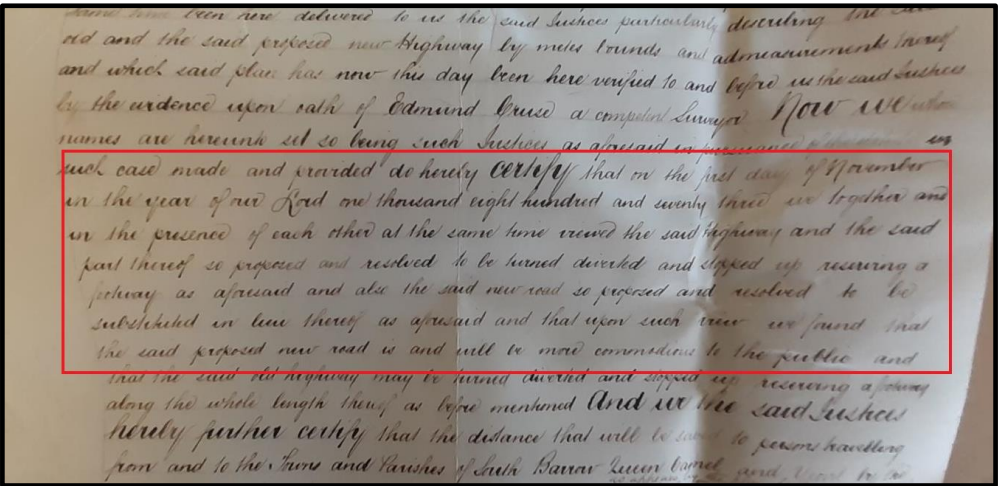 same time been here delivered to us the said Justices particularly describing the said
old and the said proposed new Highway by metes bounds and admeasurements thereof
and which said plan has now this day been here verified to and before us the said Justices
by the evidence upon oath of Edmund Cruse a competent Surveyor Now we whose
names are hereunto set so being such Justices as aforesaid in pursuance of in
such case made and provided do hereby certify that on the first day of November
in the year of our Lord one thousand eight hundred and seventy three we together and
in the presence of each other at the same time viewed the said Highway and the said
part thereof so proposed and resolved to be turned diverted and stopped up reserving a
footway as aforesaid and also the said new road so proposed and resolved to be
substituted in lieu thereof as aforesaid and that upon such view we found that
the said proposed new road is and will be more commodious to the public and
that the said old highway may be turned diverted and stopped up reserving a footway
along the whole length thereof as before mentioned And we the said Justices
hereby further certify that the distance that will be saved to persons travelling
from and to the Towns and Parishes of South Barrow Queen Camel and